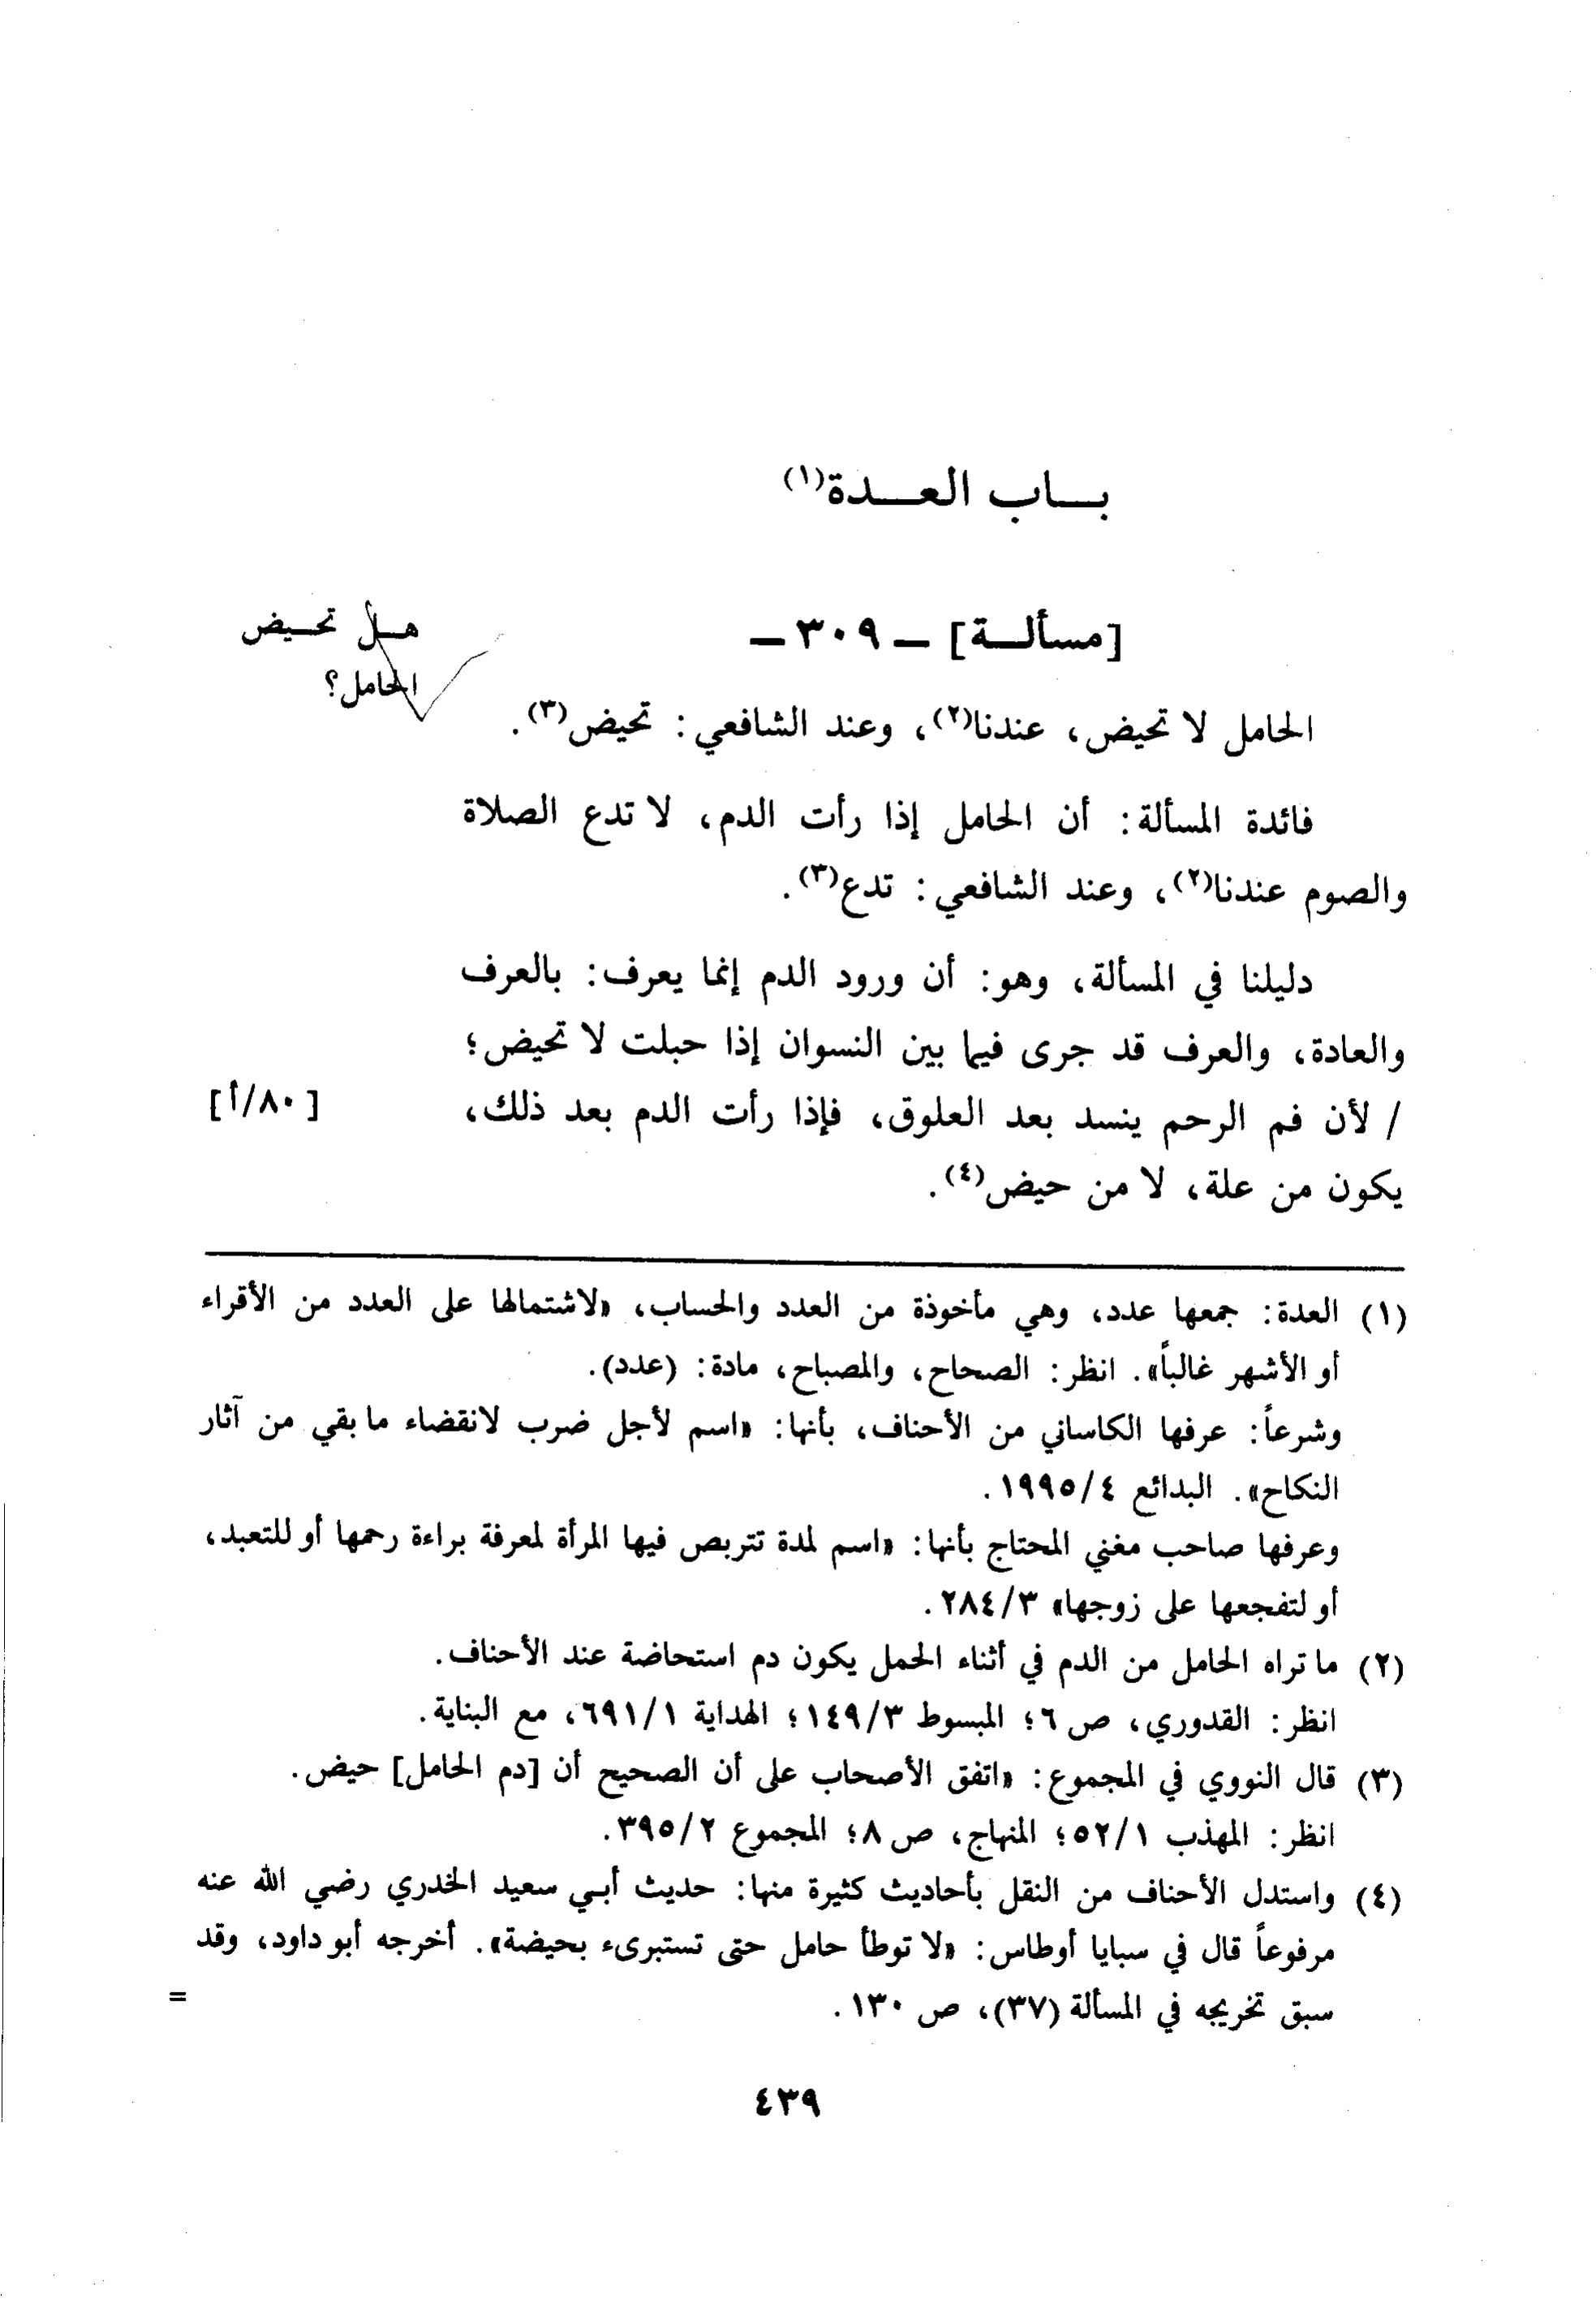 بـاب العـدة(١)
[مسألـة] ـ ٣٠٩ ـ
هـل تحـيض
الحامل؟
الحامل لا تحيض، عندنا(٢)، وعند الشافعي: تحيض(٣).
فائدة المسألة: أن الحامل إذا رأت الدم، لا تدع الصلاة
والصوم عندنا(٢)، وعند الشافعي: تدع(٣).
دليلنا في المسألة، وهو: أن ورود الدم إنما يعرف: بالعرف
والعادة، والعرف قد جرى فيما بين النسوان إذا حبلت لا تحيض؛
/ لأن فم الرحم ينسد بعد العلوق، فإذا رأت الدم بعد ذلك،
[٨٠/أ]
يكون من علة، لا من حيض(٤).
(١) العدة: جمعها عدد، وهي مأخوذة من العدد والحساب، «لاشتمالها على العدد من الأقراء
أو الأشهر غالباً». انظر: الصحاح، والمصباح، مادة: (عدد).
وشرعاً: عرفها الكاساني من الأحناف، بأنها: «اسم لأجل ضرب لانقضاء ما بقي من آثار
النكاح». البدائع ١٩٩٥/٤.
وعرفها صاحب مغني المحتاج بأنها: «اسم لمدة تتربص فيها المرأة لمعرفة براءة رحمها أو للتعبد،
أو لتفجعها على زوجها» ٢٨٤/٣.
(٢) ما تراه الحامل من الدم في أثناء الحمل يكون دم استحاضة عند الأحناف.
انظر: القدوري، ص ٦؛ المبسوط ١٤٩/٣؛ الهداية ٦٩١/١، مع البناية.
(٣) قال النووي في المجموع: «اتفق الأصحاب على أن الصحيح أن [دم الحامل] حيض.
انظر: المهذب ٥٢/١؛ المنهاج، ص ٨؛ المجموع ٣٩٥/٢.
(٤) واستدل الأحناف من النقل بأحاديث كثيرة منها: حديث أبـي سعيد الخدري رضي الله عنه
مرفوعاً قال في سبايا أوطاس: «لا توطأ حامل حتى تستبرىء بحيضة». أخرجه أبو داود، وقد
سبق تخريجه في المسألة (٣٧)، ص ١٣٠.
=
٤٣٩